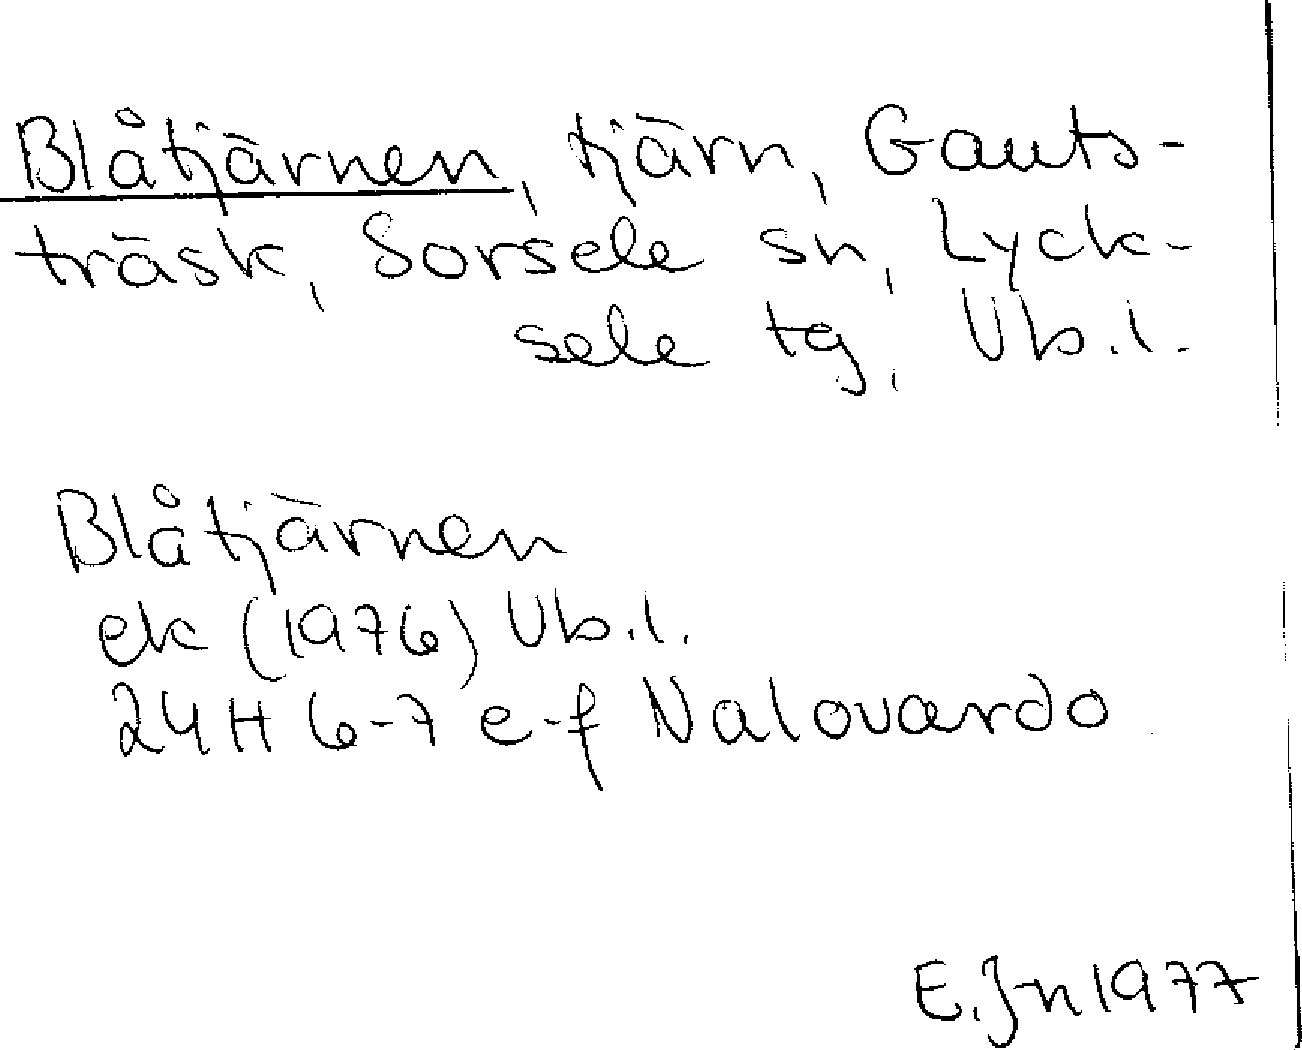 Blåtjärnen, tjärn, Gauts-
träsk, Sorsele sn, Lyck-
sele tg, Vb.l.
Blåtjärnen
ek (1976) Vb.l.
24H 6-7 e-f Nalovardo
E.Jn 1977